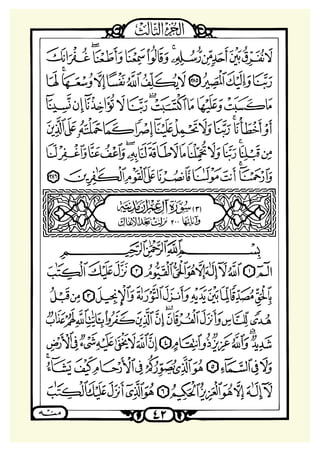 الجزء الثالث
لَا نُفَرِّقُ بَيْنَ أَحَدٍ مِّن رُّسُلِهِۦ ۚ وَقَالُوا۟ سَمِعْنَا وَأَطَعْنَا ۖ غُفْرَانَكَ
رَبَّنَا وَإِلَيْكَ ٱلْمَصِيرُ ٢٨٥ لَا يُكَلِّفُ ٱللَّهُ نَفْسًا إِلَّا وُسْعَهَا ۚ لَهَا
مَا كَسَبَتْ وَعَلَيْهَا مَا ٱكْتَسَبَتْ ۗ رَبَّنَا لَا تُؤَاخِذْنَآ إِن نَّسِينَآ
أَوْ أَخْطَأْنَا ۚ رَبَّنَا وَلَا تَحْمِلْ عَلَيْنَآ إِصْرًا كَمَا حَمَلْتَهُۥ عَلَى ٱلَّذِينَ
مِن قَبْلِنَا ۚ رَبَّنَا وَلَا تُحَمِّلْنَا مَا لَا طَاقَةَ لَنَا بِهِۦ ۖ وَٱعْفُ عَنَّا وَٱغْفِرْ لَنَا
وَٱرْحَمْنَآ ۚ أَنتَ مَوْلَىٰنَا فَٱنصُرْنَا عَلَى ٱلْقَوْمِ ٱلْكَٰفِرِينَ ٢٨٦
(٣) سورة آل عمران مدنية
وآياتها ٢٠٠ نزلت بعد الأنفال
بِسْمِ ٱللَّهِ ٱلرَّحْمَٰنِ ٱلرَّحِيمِ
الٓمٓ ١ ٱللَّهُ لَآ إِلَٰهَ إِلَّا هُوَ ٱلْحَىُّ ٱلْقَيُّومُ ٢ نَزَّلَ عَلَيْكَ ٱلْكِتَٰبَ
بِٱلْحَقِّ مُصَدِّقًا لِّمَا بَيْنَ يَدَيْهِ وَأَنزَلَ ٱلتَّوْرَىٰةَ وَٱلْإِنجِيلَ ٣ مِن قَبْلُ
هُدًى لِّلنَّاسِ وَأَنزَلَ ٱلْفُرْقَانَ ۗ إِنَّ ٱلَّذِينَ كَفَرُوا۟ بِـَٔايَٰتِ ٱللَّهِ لَهُمْ عَذَابٌ
شَدِيدٌ ۗ وَٱللَّهُ عَزِيزٌ ذُو ٱنتِقَامٍ ٤ إِنَّ ٱللَّهَ لَا يَخْفَىٰ عَلَيْهِ شَىْءٌ فِى ٱلْأَرْضِ
وَلَا فِى ٱلسَّمَآءِ ٥ هُوَ ٱلَّذِى يُصَوِّرُكُمْ فِى ٱلْأَرْحَامِ كَيْفَ يَشَآءُ ۚ
لَآ إِلَٰهَ إِلَّا هُوَ ٱلْعَزِيزُ ٱلْحَكِيمُ ٦ هُوَ ٱلَّذِىٓ أَنزَلَ عَلَيْكَ ٱلْكِتَٰبَ
٤٢
منه